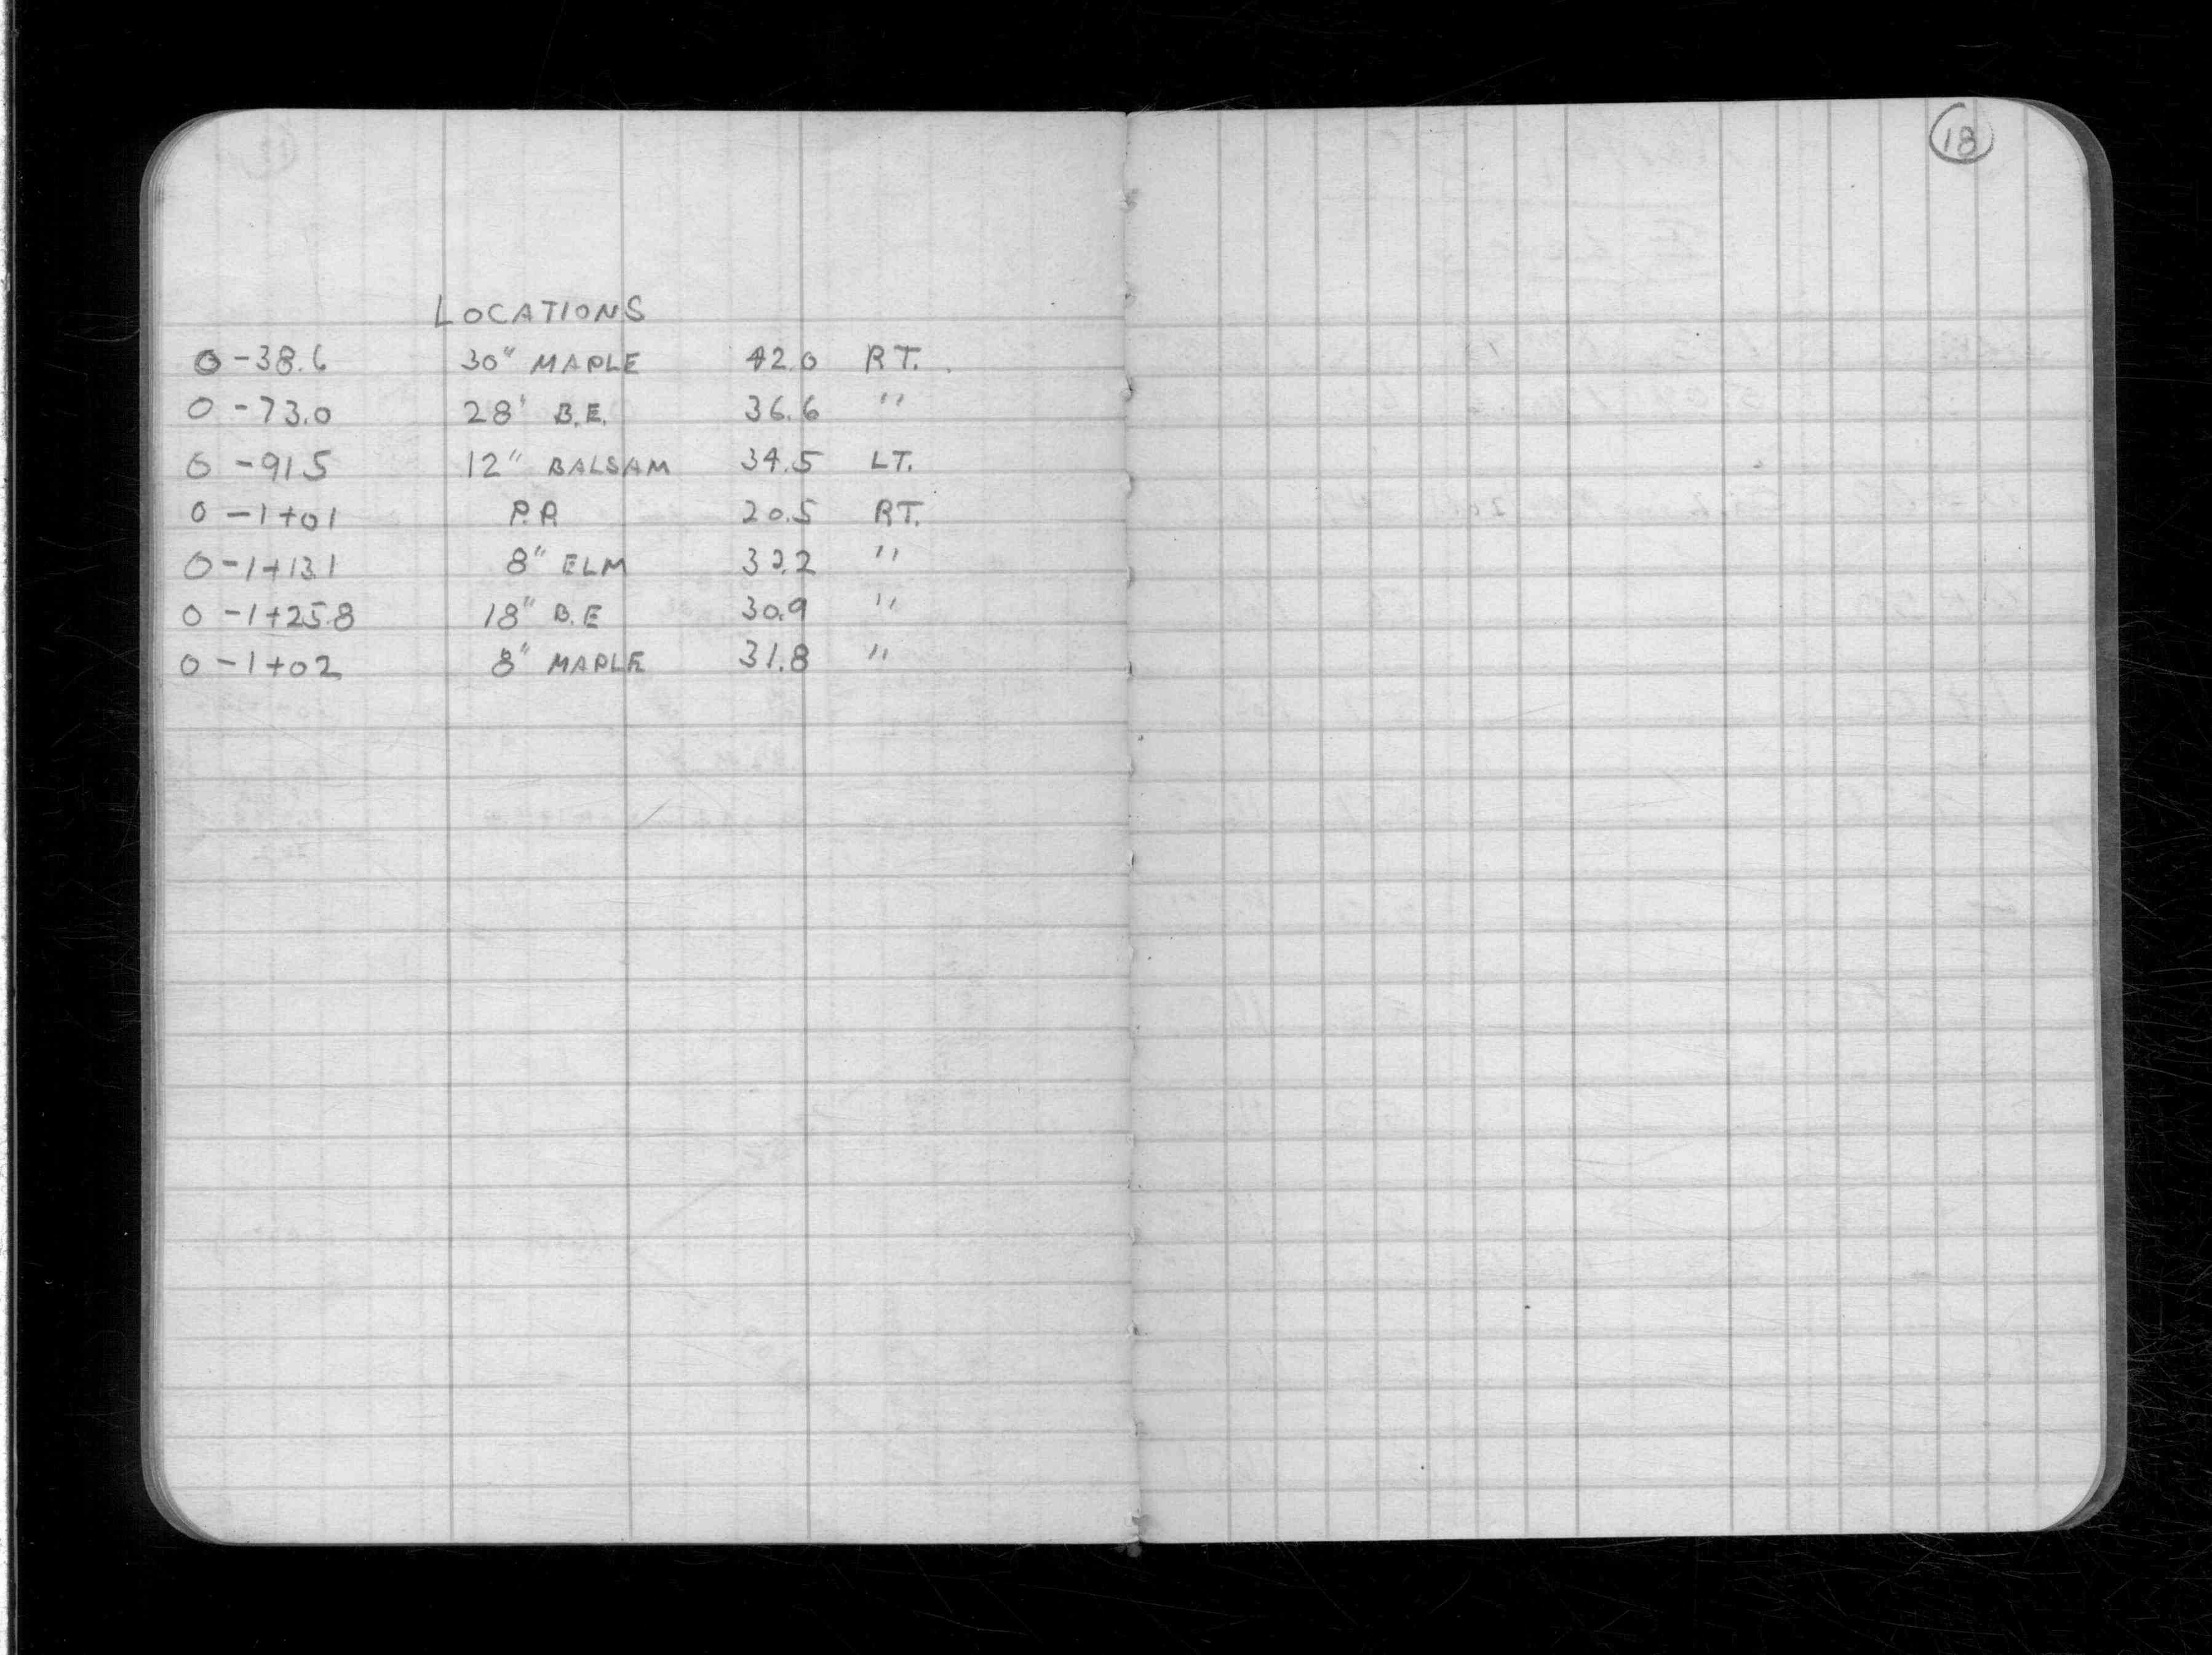 18
LOCATIONS
0 -38.6 30" MAPLE 42.0 RT.
0 -73.0 28' B.E. 36.6 "
0 -91.5 12" BALSAM 34.5 LT.
0 -1+01 P.P. 20.5 RT.
0 -1+13.1 8" ELM 32.2 "
0 -1+25.8 18" B.E 30.9 "
0 -1+02 8" MAPLE 31.8 "